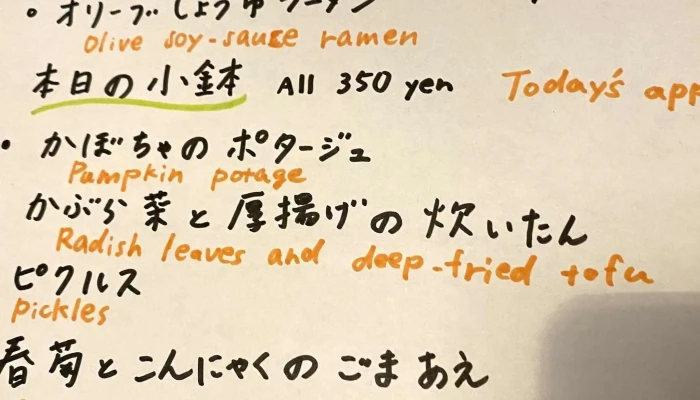 ・オリーブしょうゆラーメン
Olive soy-sauce ramen
本日の小鉢 All 350 yen Today's app
・かぼちゃのポタージュ
Pumpkin potage
かぶら菜と厚揚げの炊いたん
Radish leaves and deep-fried tofu
ピクルス
pickles
春菊とこんにゃくのごまあえ